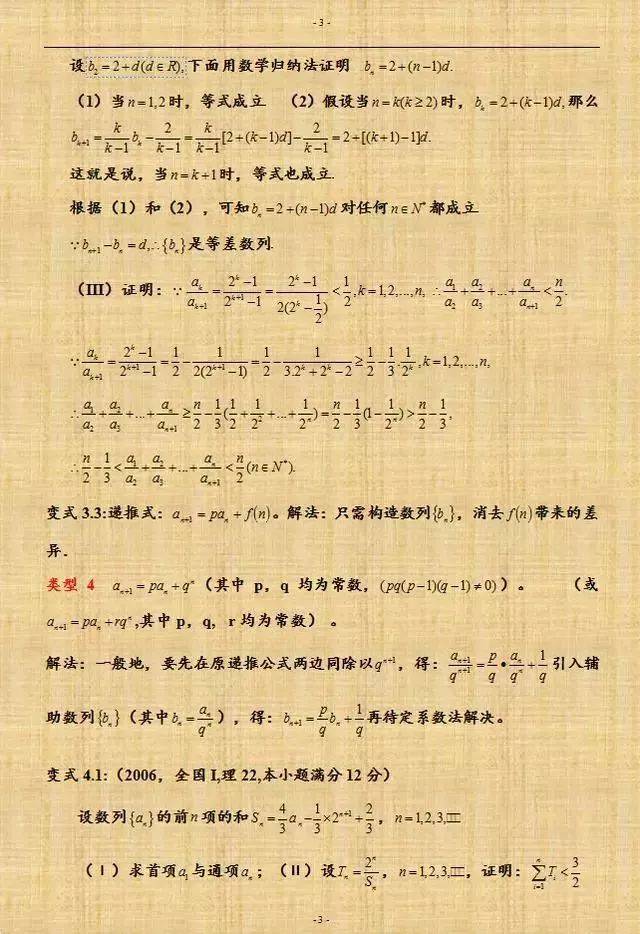 - 3 -
设b₂ = 2 + d(d∈R),下面用数学归纳法证明 bₙ = 2 + (n−1)d.
（1）当n = 1,2时，等式成立 （2）假设当n = k(k ≥ 2)时，bₙ = 2 + (k−1)d,那么
bₖ₊₁ = k/(k−1) bₖ − 2/(k−1) = k/(k−1)[2 + (k−1)d] − 2/(k−1) = 2 + [(k+1)−1]d.
这就是说，当n = k+1时，等式也成立.
根据（1）和（2），可知bₙ = 2 + (n−1)d对任何n∈N*都成立
∵bₙ₊₁ − bₙ = d,∴{bₙ}是等差数列.
（III）证明：∵aₖ/aₖ₊₁ = (2ᵏ−1)/(2ᵏ⁺¹−1) = (2ᵏ−1)/(2(2ᵏ−1/2)) < 1/2, k = 1,2,...,n, ∴a₁/a₂ + a₂/a₃ + ... + aₙ/aₙ₊₁ < n/2.
∵aₖ/aₖ₊₁ = (2ᵏ−1)/(2ᵏ⁺¹−1) = 1/2 − 1/(2(2ᵏ⁺¹−1)) = 1/2 − 1/(3.2ᵏ+2ᵏ−2) ≥ 1/2 − 1/3·1/2ᵏ, k = 1,2,...,n,
∴a₁/a₂ + a₂/a₃ + ... + aₙ/aₙ₊₁ ≥ n/2 − 1/3(1/2 + 1/2² + ... + 1/2ⁿ) = n/2 − 1/3(1 − 1/2ⁿ) > n/2 − 1/3,
∴n/2 − 1/3 < a₁/a₂ + a₂/a₃ + ... + aₙ/aₙ₊₁ < n/2(n∈N*).
变式 3.3:递推式：aₙ₊₁ = paₙ + f(n)。解法：只需构造数列{bₙ}，消去f(n)带来的差
异．
类型 4 aₙ₊₁ = paₙ + qⁿ（其中 p，q 均为常数，(pq(p−1)(q−1) ≠ 0)）。 （或
aₙ₊₁ = paₙ + rqⁿ,其中 p，q, r 均为常数）。
解法：一般地，要先在原递推公式两边同除以qⁿ⁺¹，得：aₙ₊₁/qⁿ⁺¹ = p/q • aₙ/qⁿ + 1/q 引入辅
助数列{bₙ}（其中bₙ = aₙ/qⁿ），得：bₙ₊₁ = p/q bₙ + 1/q 再待定系数法解决。
变式 4.1:（2006，全国 I,理 22,本小题满分 12 分）
设数列{aₙ}的前n项的和Sₙ = 4/3 aₙ − 1/3×2ⁿ⁺¹ + 2/3，n = 1,2,3,□□
（Ⅰ）求首项a₁与通项aₙ；（II）设Tₙ = 2ⁿ/Sₙ，n = 1,2,3,□□，证明：∑ᵢ₌₁ⁿ Tᵢ < 3/2
- 3 -